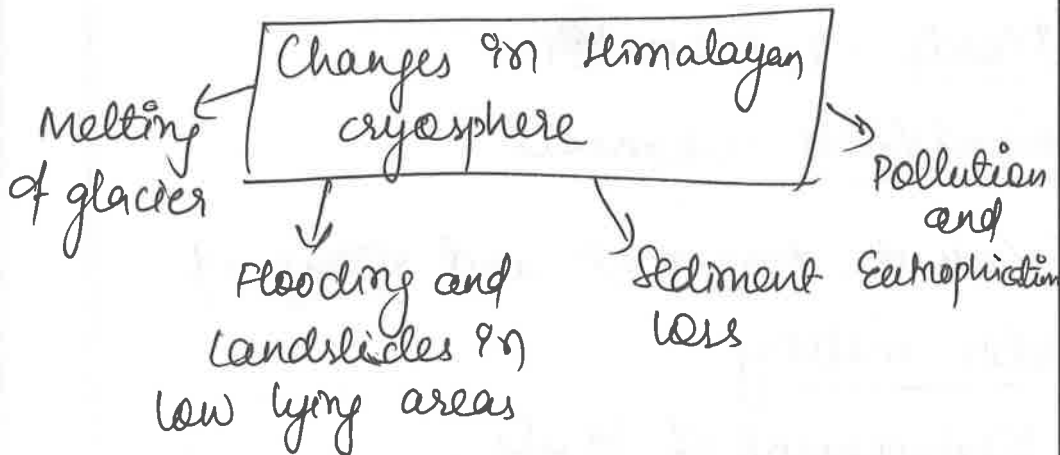 Changes in Himalayan
cryosphere
Melting
of glacier
Flooding and
Landslides in
low lying areas
Sediment
Loss
Pollution
and
Eutrophication